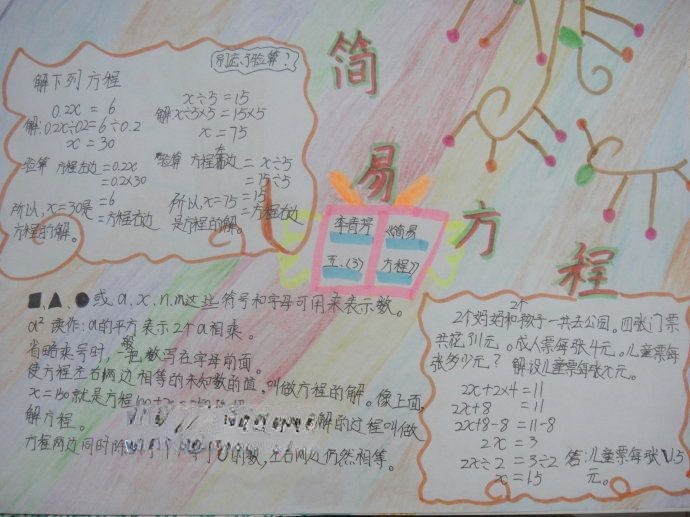 简易方程
别忘了验算？
解下列方程
0.2x = 6
解: 0.2x÷0.2 = 6÷0.2
x = 30
验算 方程左边 = 0.2x
= 0.2×30
= 6
= 方程右边
所以, x=30是
方程的解。
x÷5 = 15
解 x÷5×5 = 15×5
x = 75
验算 方程左边 = x÷5
= 75÷5
= 15
= 方程右边
所以, x=75
是方程的解。
李青芳
五、(3)
《简易
方程》
■、▲、●或 a、x、n、m这些符号和字母可用来表示数。
a² 读作: a的平方 表示2个a相乘。
省略乘号时, 一般把数写在字母前面。
使方程左右两边相等的未知数的值, 叫做方程的解。像上面,
就是方程
解的过程叫做
解方程。
方程两边同时除 的数, 左右两边仍然相等。
2个妈妈和2个孩子一共去公园。四张门票
共花了11元。成人票每张4元。儿童票每
张多少元？ 解设儿童票每张x元。
2x+2×4 = 11
2x+8 = 11
2x+8-8 = 11-8
2x = 3
2x÷2 = 3÷2
x = 1.5
答: 儿童票每张1.5
元。